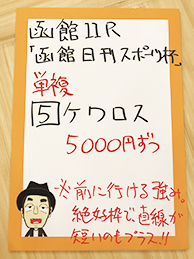 函館11R
「函館日刊スポーツ杯」
単複
5ケワロス
5000円ずつ
※前に行ける強み。
絶好枠で、直線が
短いのもプラス!!